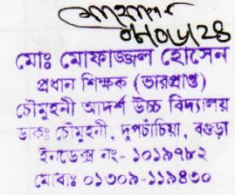 মোঃ মোফাজ্জল হোসেন
প্রধান শিক্ষক (ভারপ্রাপ্ত)
চৌমুহনী আদর্শ উচ্চ বিদ্যালয়
ডাকঃ চৌমুহনী, দুপচাঁচিয়া, বগুড়া
ইনডেক্স নং- ১০১৯৭৮২
মোবাঃ ০১৩০৯-১১৯৪৩০